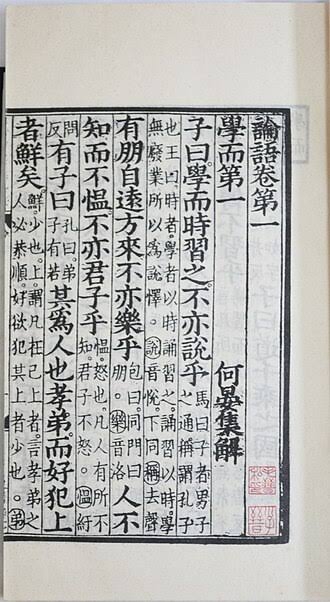 論語卷第一
學而第一 何晏集解
子曰。學而時習之。不亦說乎 馬曰子者男子之通稱謂孔子
也王曰。時者。學者以時誦習之。誦習以時學無廢業所以爲說懌。說音悅。下同稱去聲
有朋自遠方來不亦樂乎 包曰。同門曰朋。樂音洛 人不
知而不慍。不亦君子乎 慍。怒也。凡人有所不知。君子不怒。慍紆
問反 有子曰 孔曰。弟子有若 其爲人也孝弟而好犯上
者鮮矣。鮮。少也。上。謂凡在己上者。言孝弟之人必恭順。好欲犯其上者少也。弟